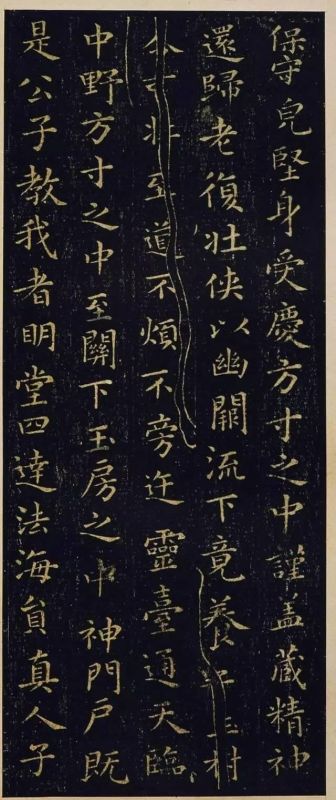 保守皃堅身受慶方寸之中謹盖藏精神
還歸老復壯俠以幽闕流下竟養玉
至道不煩不旁迕靈臺通天臨
中野方寸之中至關下玉房之中神門戶既
是公子教我者眀堂四達法海員真人子